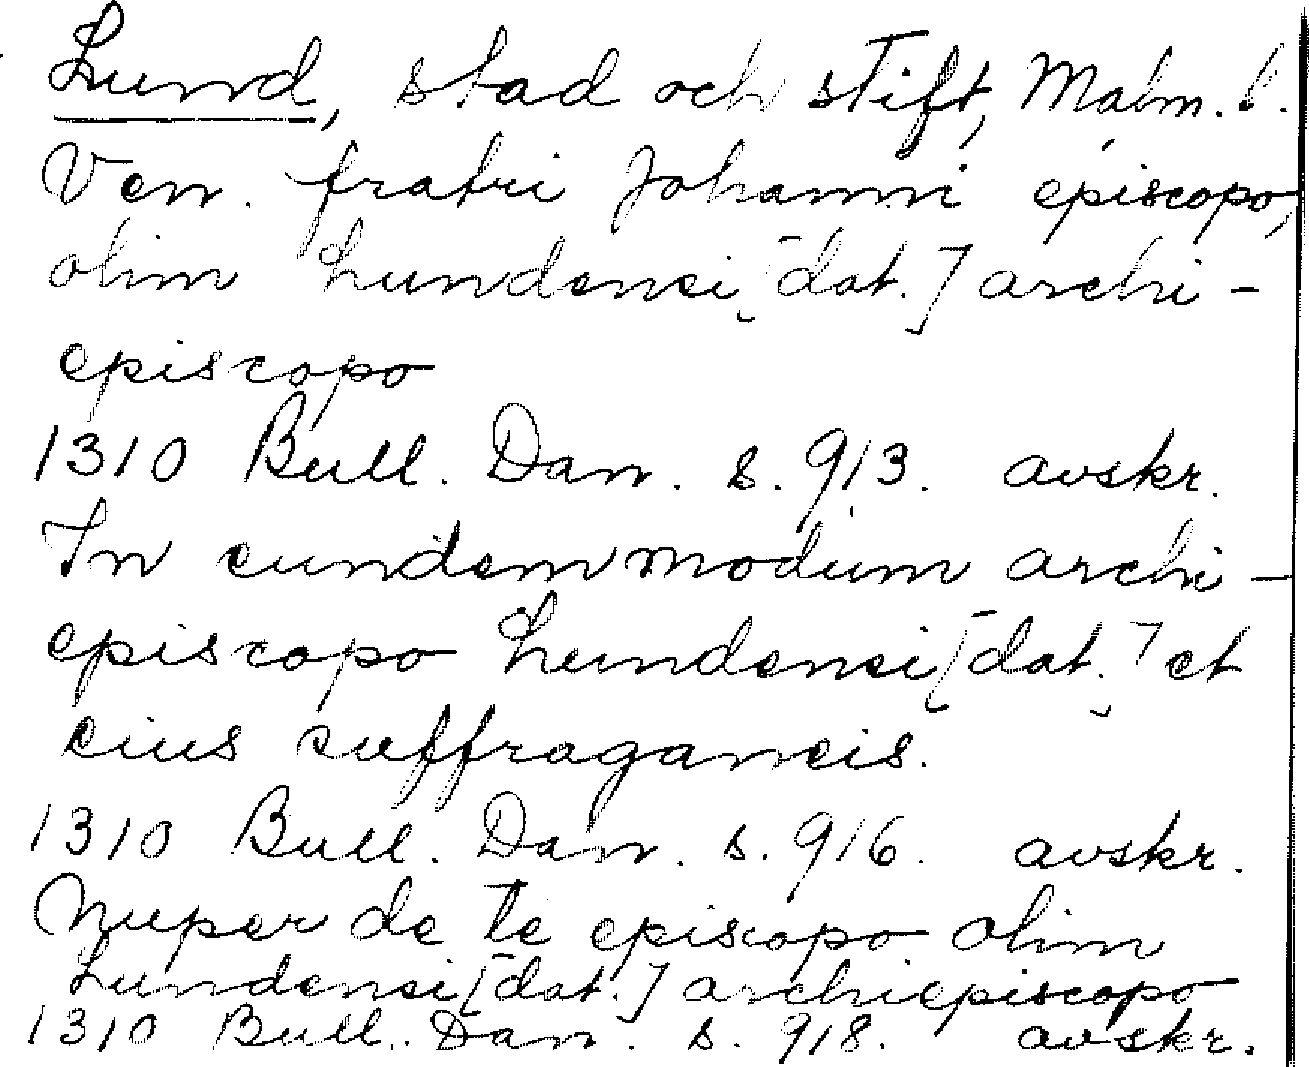 Lund, stad och stift, Malm. l.
Ven. fratri Johanni episcopo,
olim Lundensi [dat.] archi-
episcopo
1310 Bull. Dan. s. 913. avskr.
In eundem modum archi-
episcopo Lundensi [dat.] et
eius suffraganeis.
1310 Bull. Dan. s. 916. avskr.
Nuper de te episcopo olim
Lundensi [dat.] archiepiscopo
1310 Bull. Dan. s. 918. avskr.